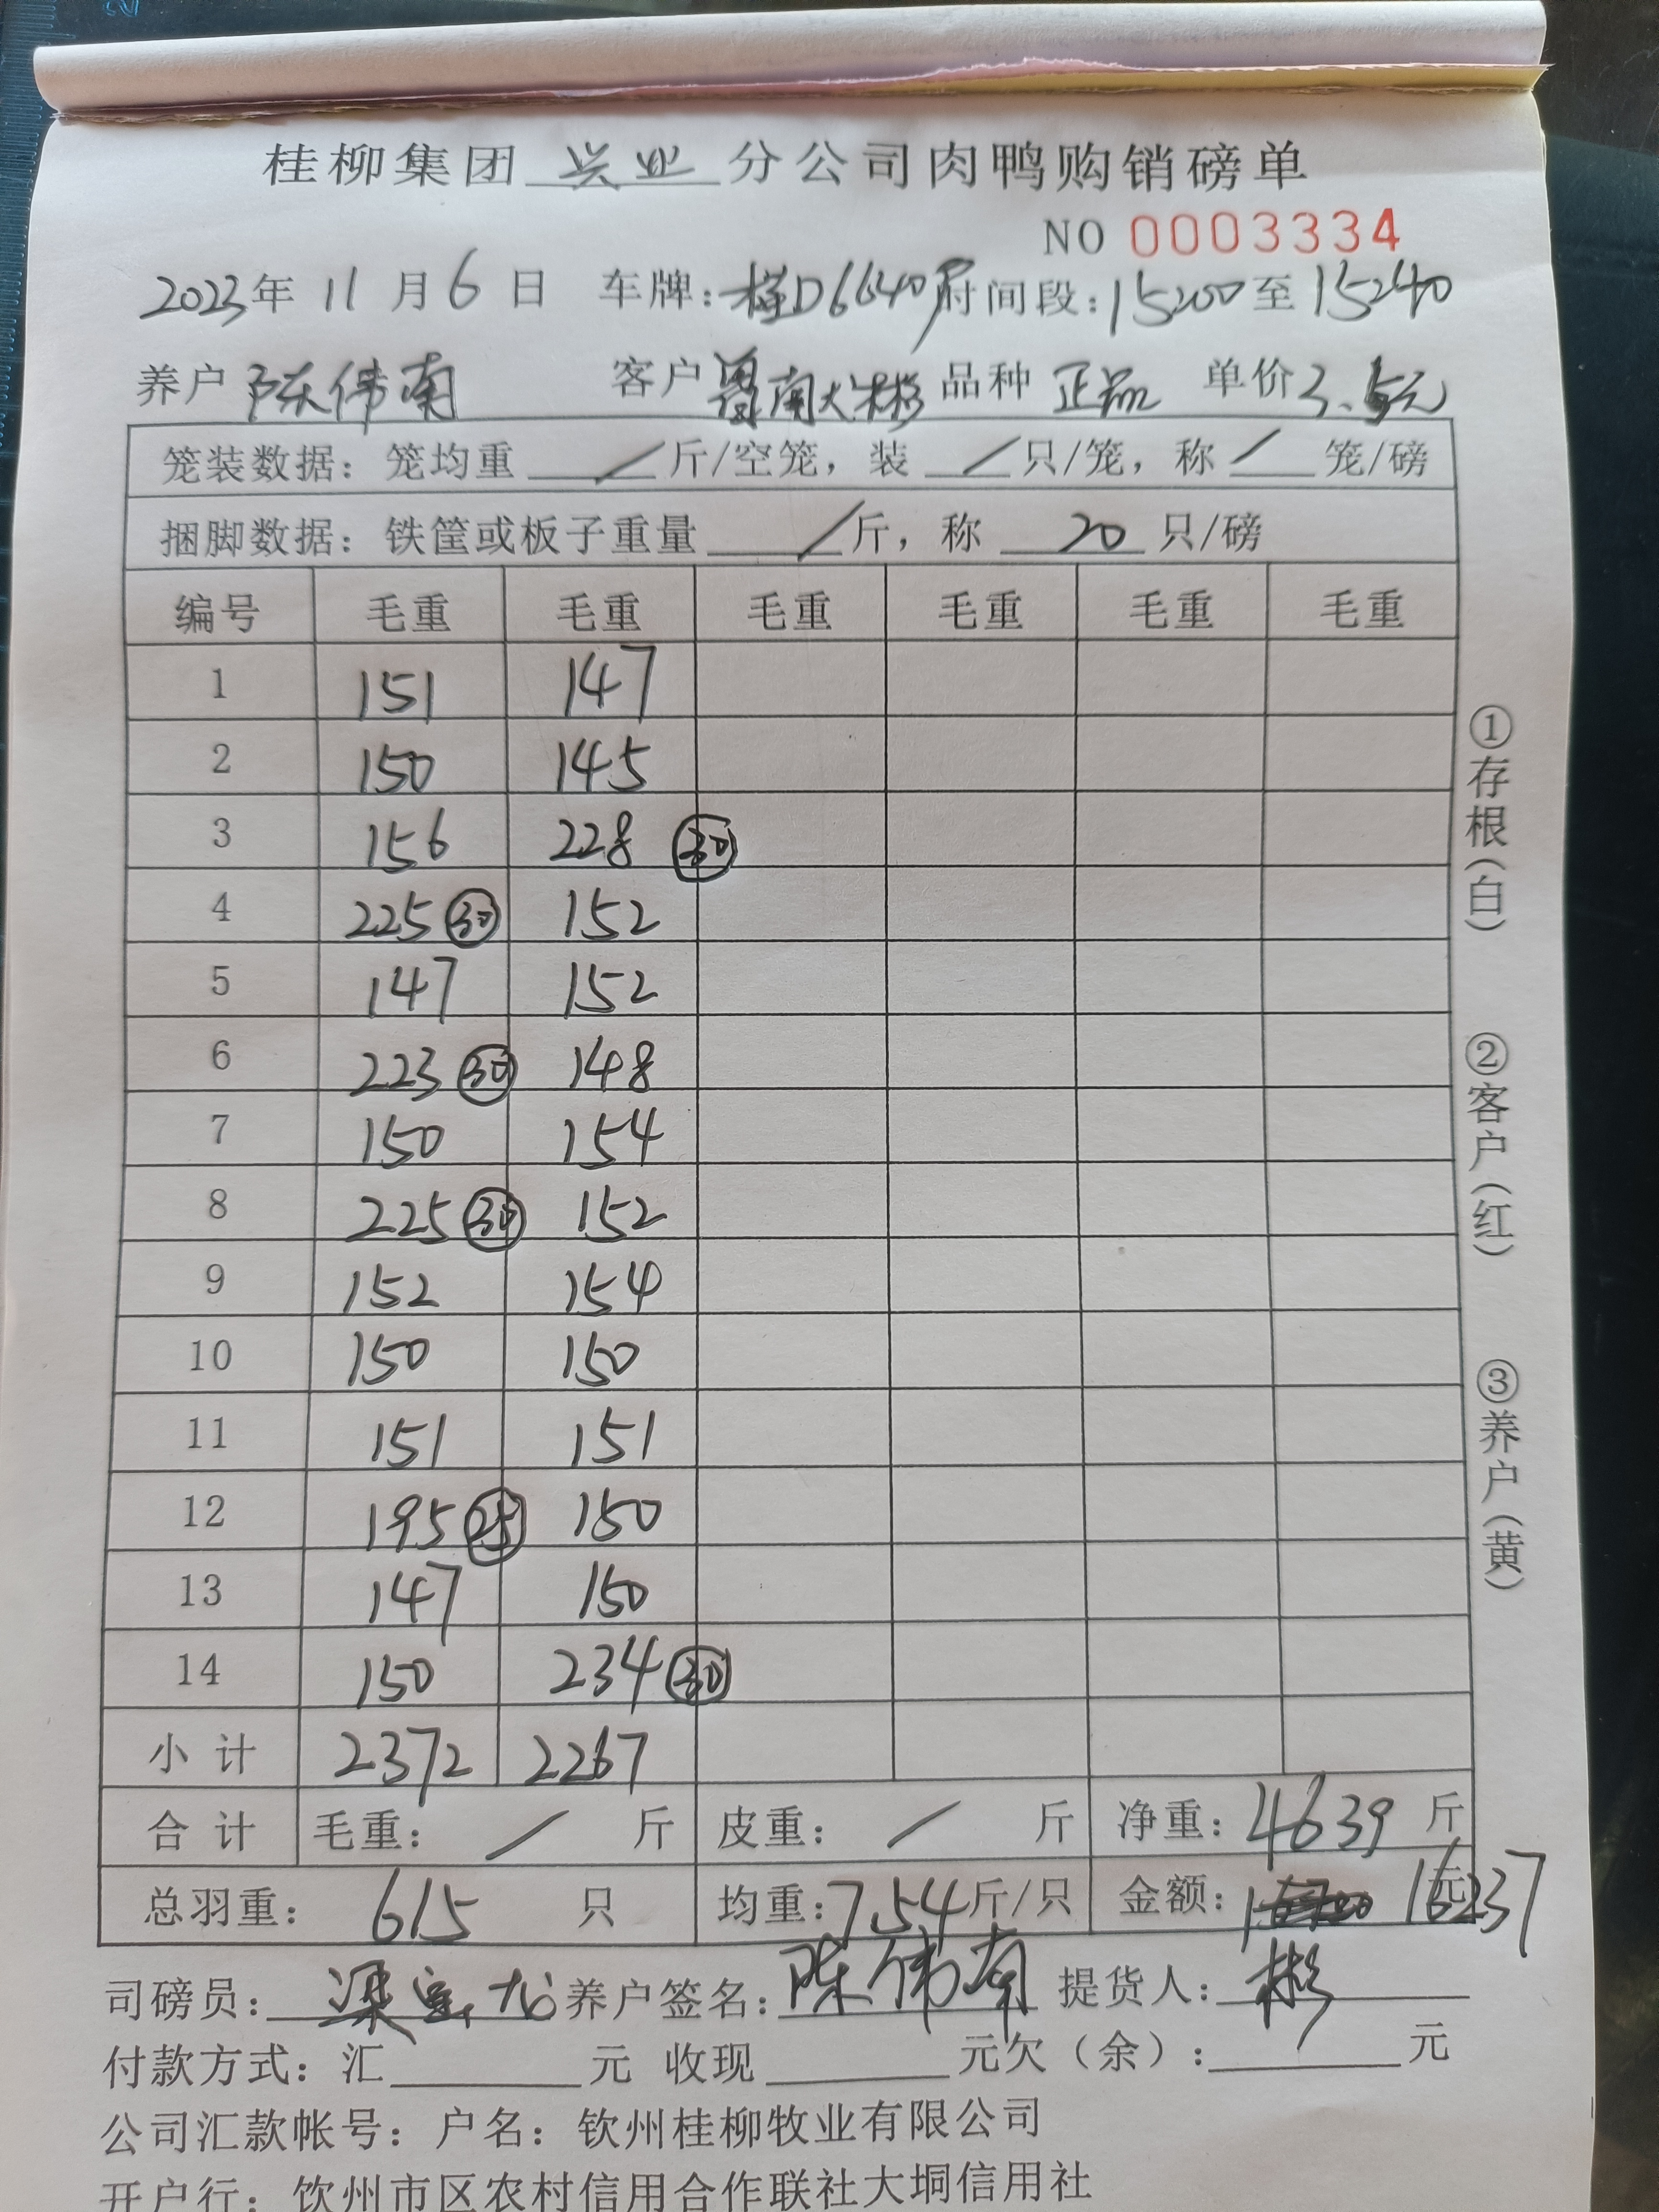 桂柳集团 兴业 分公司肉鸭购销磅单
NO 0003334
2023年 11 月 6 日 车牌: 桂D6640 时间段: 15:00 至 15:40
养户 陈伟南 客户 南大彬 品种 正品 单价 3.5元
笼装数据: 笼均重 / 斤/空笼, 装 / 只/笼, 称 / 笼/磅
捆脚数据: 铁筐或板子重量 / 斤, 称 20 只/磅
编号 毛重 毛重 毛重 毛重 毛重 毛重
1 151 147
2 150 145
3 156 228 ㉚
4 225 ㉚ 152
5 147 152
6 223 ㉚ 148
7 150 154
8 225 ㉚ 152
9 152 154
10 150 150
11 151 151
12 195 ㉕ 150
13 147 150
14 150 234 ㉚
小计 2372 2267
合计 毛重: / 斤 皮重: / 斤 净重: 4639 斤
总羽重: 615 只 均重: 7.54 斤/只 金额: 16237 元
司磅员: 梁 龙 养户签名: 陈伟南 提货人: 彬
付款方式: 汇 元 收现 元欠(余): 元
公司汇款帐号: 户名: 钦州桂柳牧业有限公司
开户行: 钦州市区农村信用合作联社大垌信用社
①存根(白)
②客户(红)
③养户(黄)